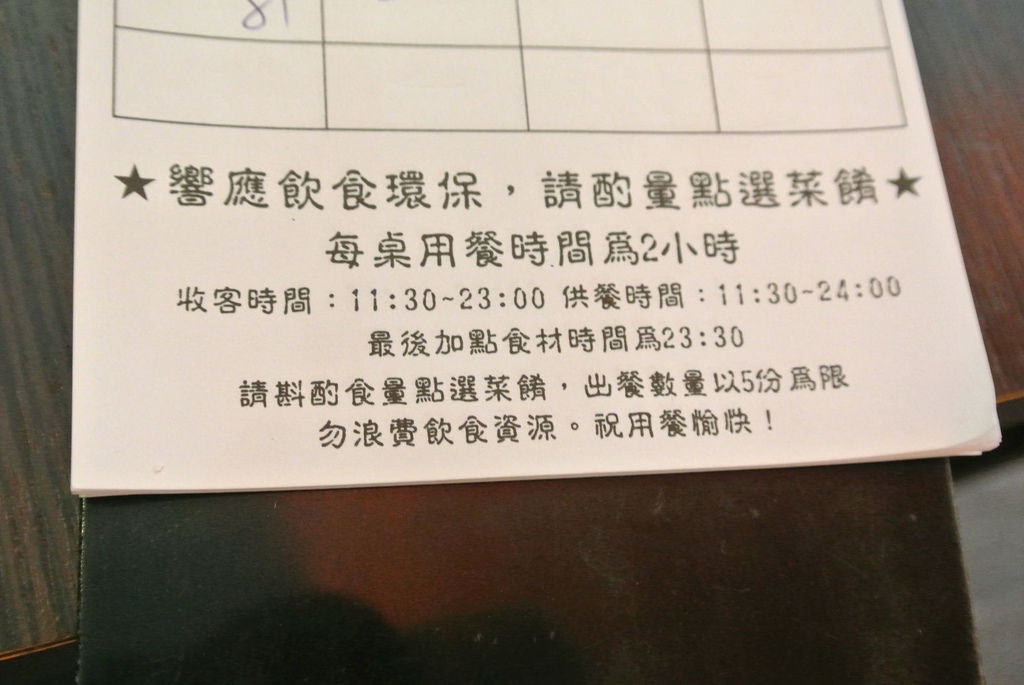 ★響應飲食環保，請酌量點選菜餚★
每桌用餐時間為2小時
收客時間：11:30~23:00 供餐時間：11:30~24:00
最後加點食材時間為23:30
請斟酌食量點選菜餚，出餐數量以5份為限
勿浪費飲食資源。祝用餐愉快！